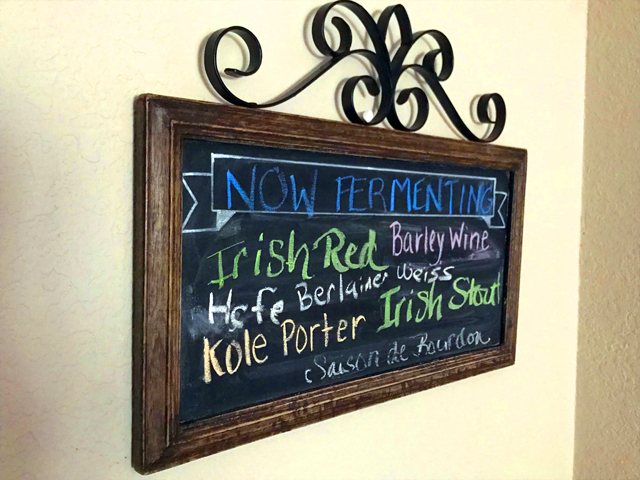 NOW FERMENTING
Irish Red Barley Wine
Hefe Berlainer Weiss Irish Stout
Kole Porter
Saison de Bourdon